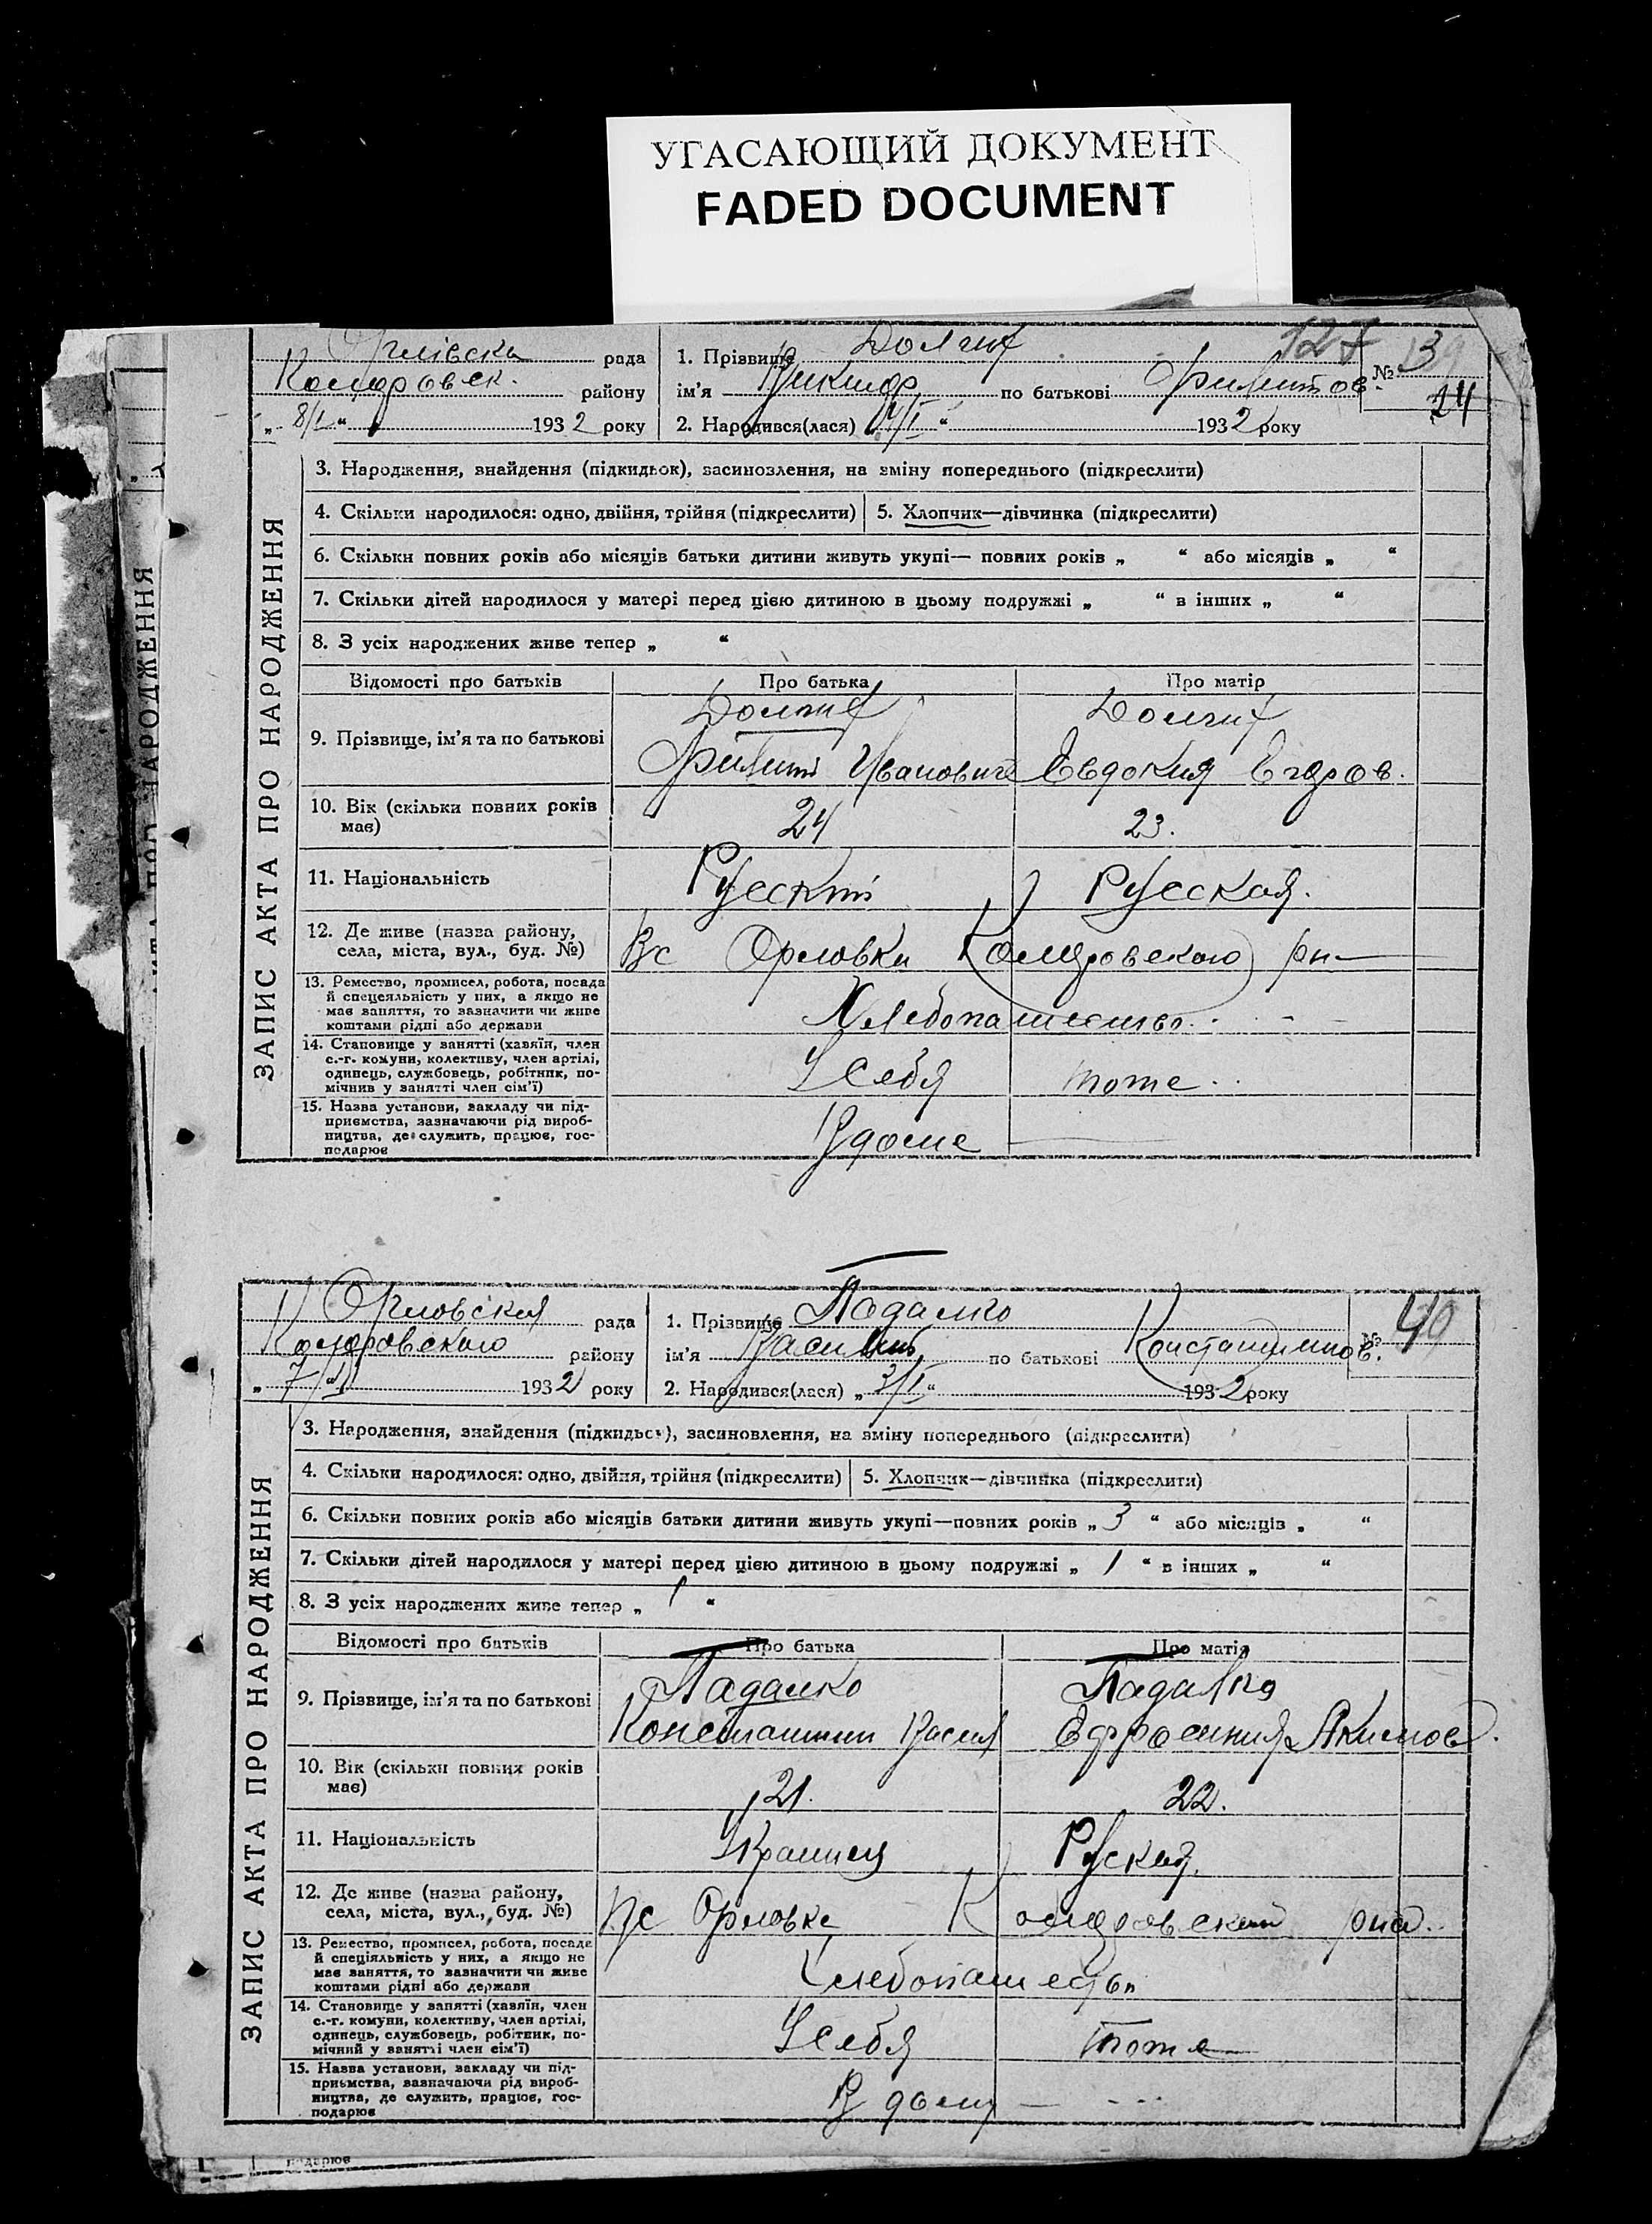 УГАСАЮЩИЙ ДОКУМЕНТ
FADED DOCUMENT
ЗАПИС АКТА ПРО НАРОДЖЕННЯ
рада
району
„ 8/I “ 1932 року
127
1. Прізвище Долгих
ім'я по батькові Филипов.
2. Народився(лася) 4/I “ 1932 року
№ 39
24
3. Народження, знайдення (підкидьок), засиновлення, на зміну попереднього (підкреслити)
4. Скільки народилося: одно, двійня, трійня (підкреслити) 5. Хлопчик—дівчинка (підкреслити)
6. Скільки повних років або місяців батьки дитини живуть укупі— повних років „ “ або місяців „ “
7. Скільки дітей народилося у матері перед цією дитиною в цьому подружжі „ “ в інших „ “
8. З усіх народжених живе тепер „ “
Відомості про батьків Про батька Про матір
9. Прізвище, ім'я та по батькові
Долгих Долгих
Филипп Иванович Евдокия Егоров.
10. Вік (скільки повних років має) 24 23.
11. Національність Русский Русская.
12. Де живе (назва району, села, міста, вул., буд. №)
Вс Орловки рн
13. Ремество, промисел, робота, посада
й спецеяльність у них, а якщо не
має заняття, то зазначити чи живе
коштами рідні або держави
Хлебопашество.
14. Становище у занятті (хазяїн, член
с.-г. комуни, колективу, член артілі,
одинець, службовець, робітник, по-
мічнив у занятті член сім'ї)
У себя тоже
15. Назва установи, закладу чи під-
приємства, зазначаючи рід вироб-
ництва, де служить, працює, гос-
подарює
В доме
ЗАПИС АКТА ПРО НАРОДЖЕННЯ
Орловская рада
району
„ 7/I 1932 року
1. Прізвище Падалко
ім'я Василий по батькові Константинов.
2. Народився(лася) „ 3/I “ 1932 року
№ 40
3. Народження, знайдення (підкидьок), засиновлення, на зміну попереднього (підкреслити)
4. Скільки народилося: одно, двійня, трійня (підкреслити) 5. Хлопчик—дівчинка (підкреслити)
6. Скільки повних років або місяців батьки дитини живуть укупі—повних років „ 3 “ або місяців „ “
7. Скільки дітей народилося у матері перед цією дитиною в цьому подружжі „ 1 “ в інших „ “
8. З усіх народжених живе тепер „ 1 “
Відомості про батьків Про батька Про матір
9. Прізвище, ім'я та по батькові
Падалко Падалко
Константин Васил Ефросиния Акимов.
10. Вік (скільки повних років має) 21. 22.
11. Національність Украинец Руская.
12. Де живе (назва району, села, міста, вул., буд. №)
Вс Орловке
13. Ремество, промисел, робота, посада
й спеціяльність у них, а якщо не
має заняття, то зазначити чи живе
коштами рідні або держави
14. Становище у занятті (хазяїн, член
с.-г. комуни, колективу, член артілі,
одинець, службовець, робітник, по-
мічний у занятті член сім'ї)
У себя тоже
15. Назва установи, закладу чи під-
приємства, зазначаючи рід вироб-
ництва, де служить, працює, гос-
подарює
В дому
подарює